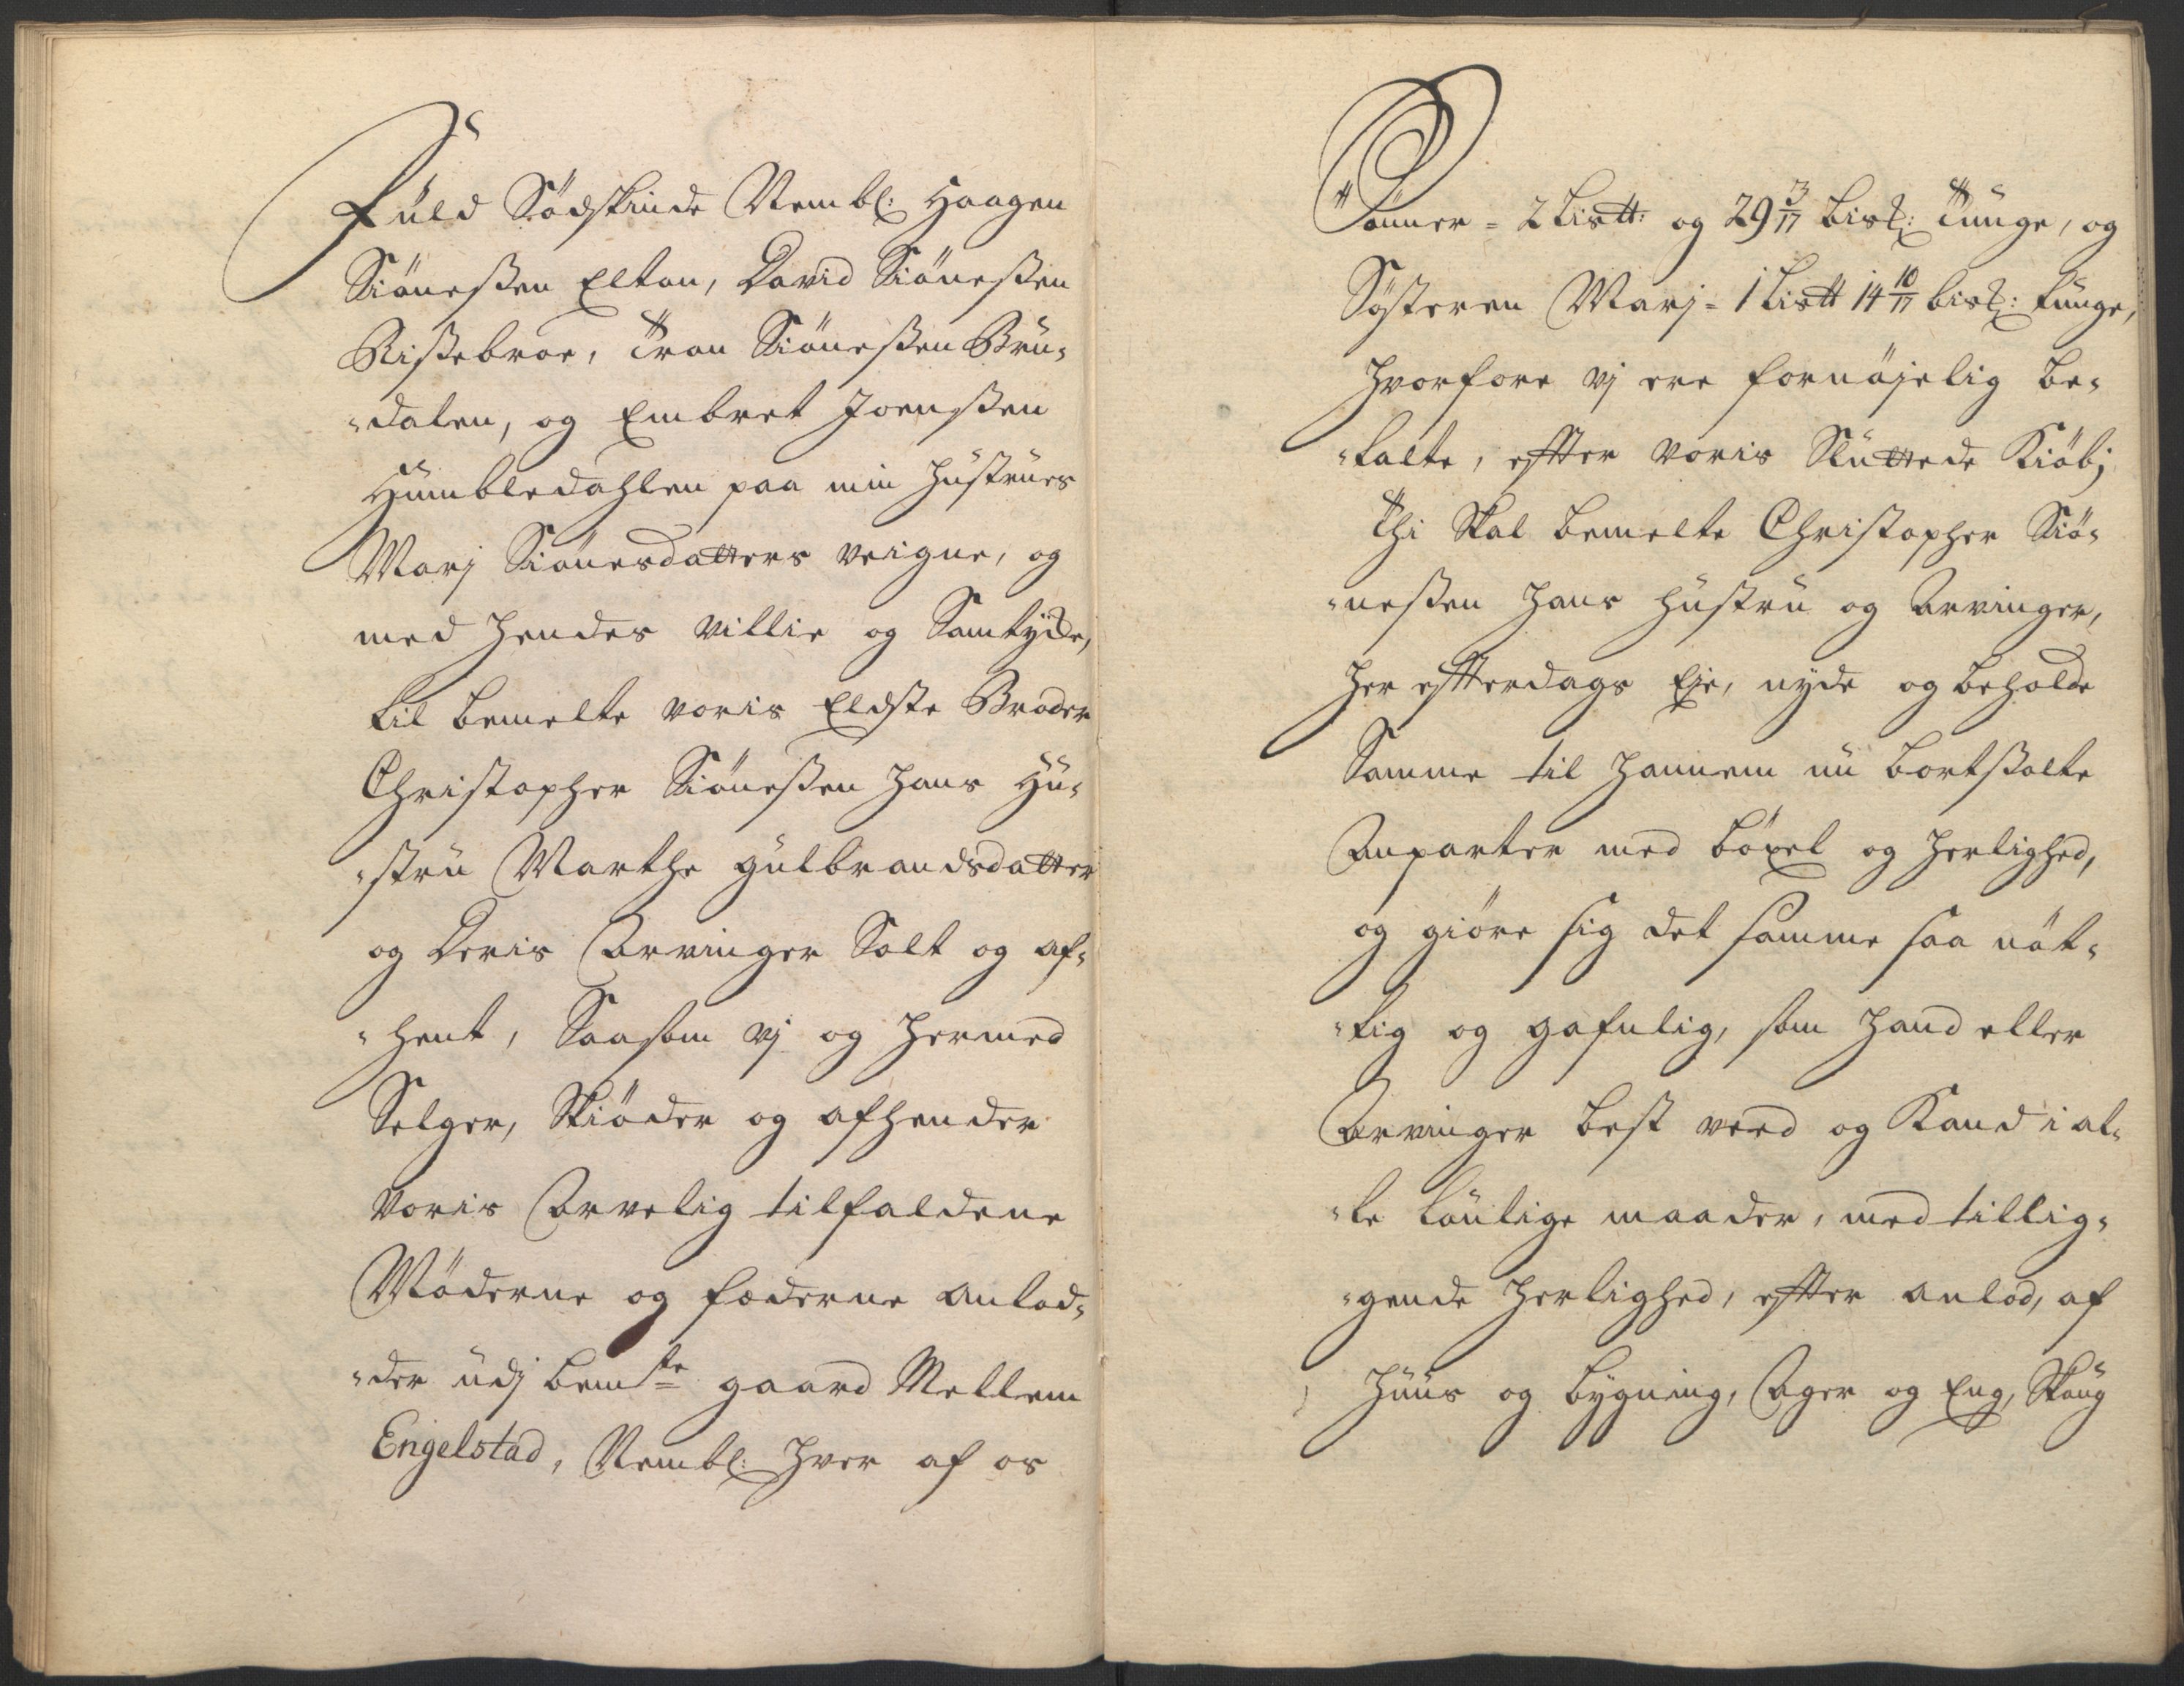 Fuld Södskinde Nembl: Haagen
Siönessen Elton, David Siönessen
Rissebroe, Tron Siönessen Bru-
-dalen, og Embret Joenssen
Humbledahlen paa min Hustrues
Marj Siönesdatters veigne, og
med hendes villie og Samtÿcke,
til bemelte voris Eldste Broder
Christopher Siönessen hans Hu-
-stru Marthe Gulbrandsdatter
og Deris Arvinger Solt og af-
-hent, Saasom vj og hermed
Selger, Skiöder og afhender
Voris Arvelig tilfaldene
Möderne og fæderne anlod-
-der udj bemte gaard Mellem
Engelstad, Nembl: hver af os
Sönner = 2 Listt: og 29 3/17 bisl: Tunge, og
Sÿsteren Marj = 1 Listt 14 10/17 bisl: tunge,
hvorfore vj ere fornöjelig be-
-talte, effter voris Sluttede Kiöbj
Thi Skal bemelte Christopher Siö-
-nessen hans hustru og Arvinger,
her effterdags Eje, nÿde og beholde
Samme til hannem nu bortsolte
Anparter med böxel og herlighed,
og giöre sig det samme saa nöt-
-tig og gafnlig, som hand eller
Arvinger best veed og Kand i al-
-le lôulige maader, med tillig-
-gende herlighed, effter anlod, af
Huus og bÿgning, Ager og Eng, Skoug